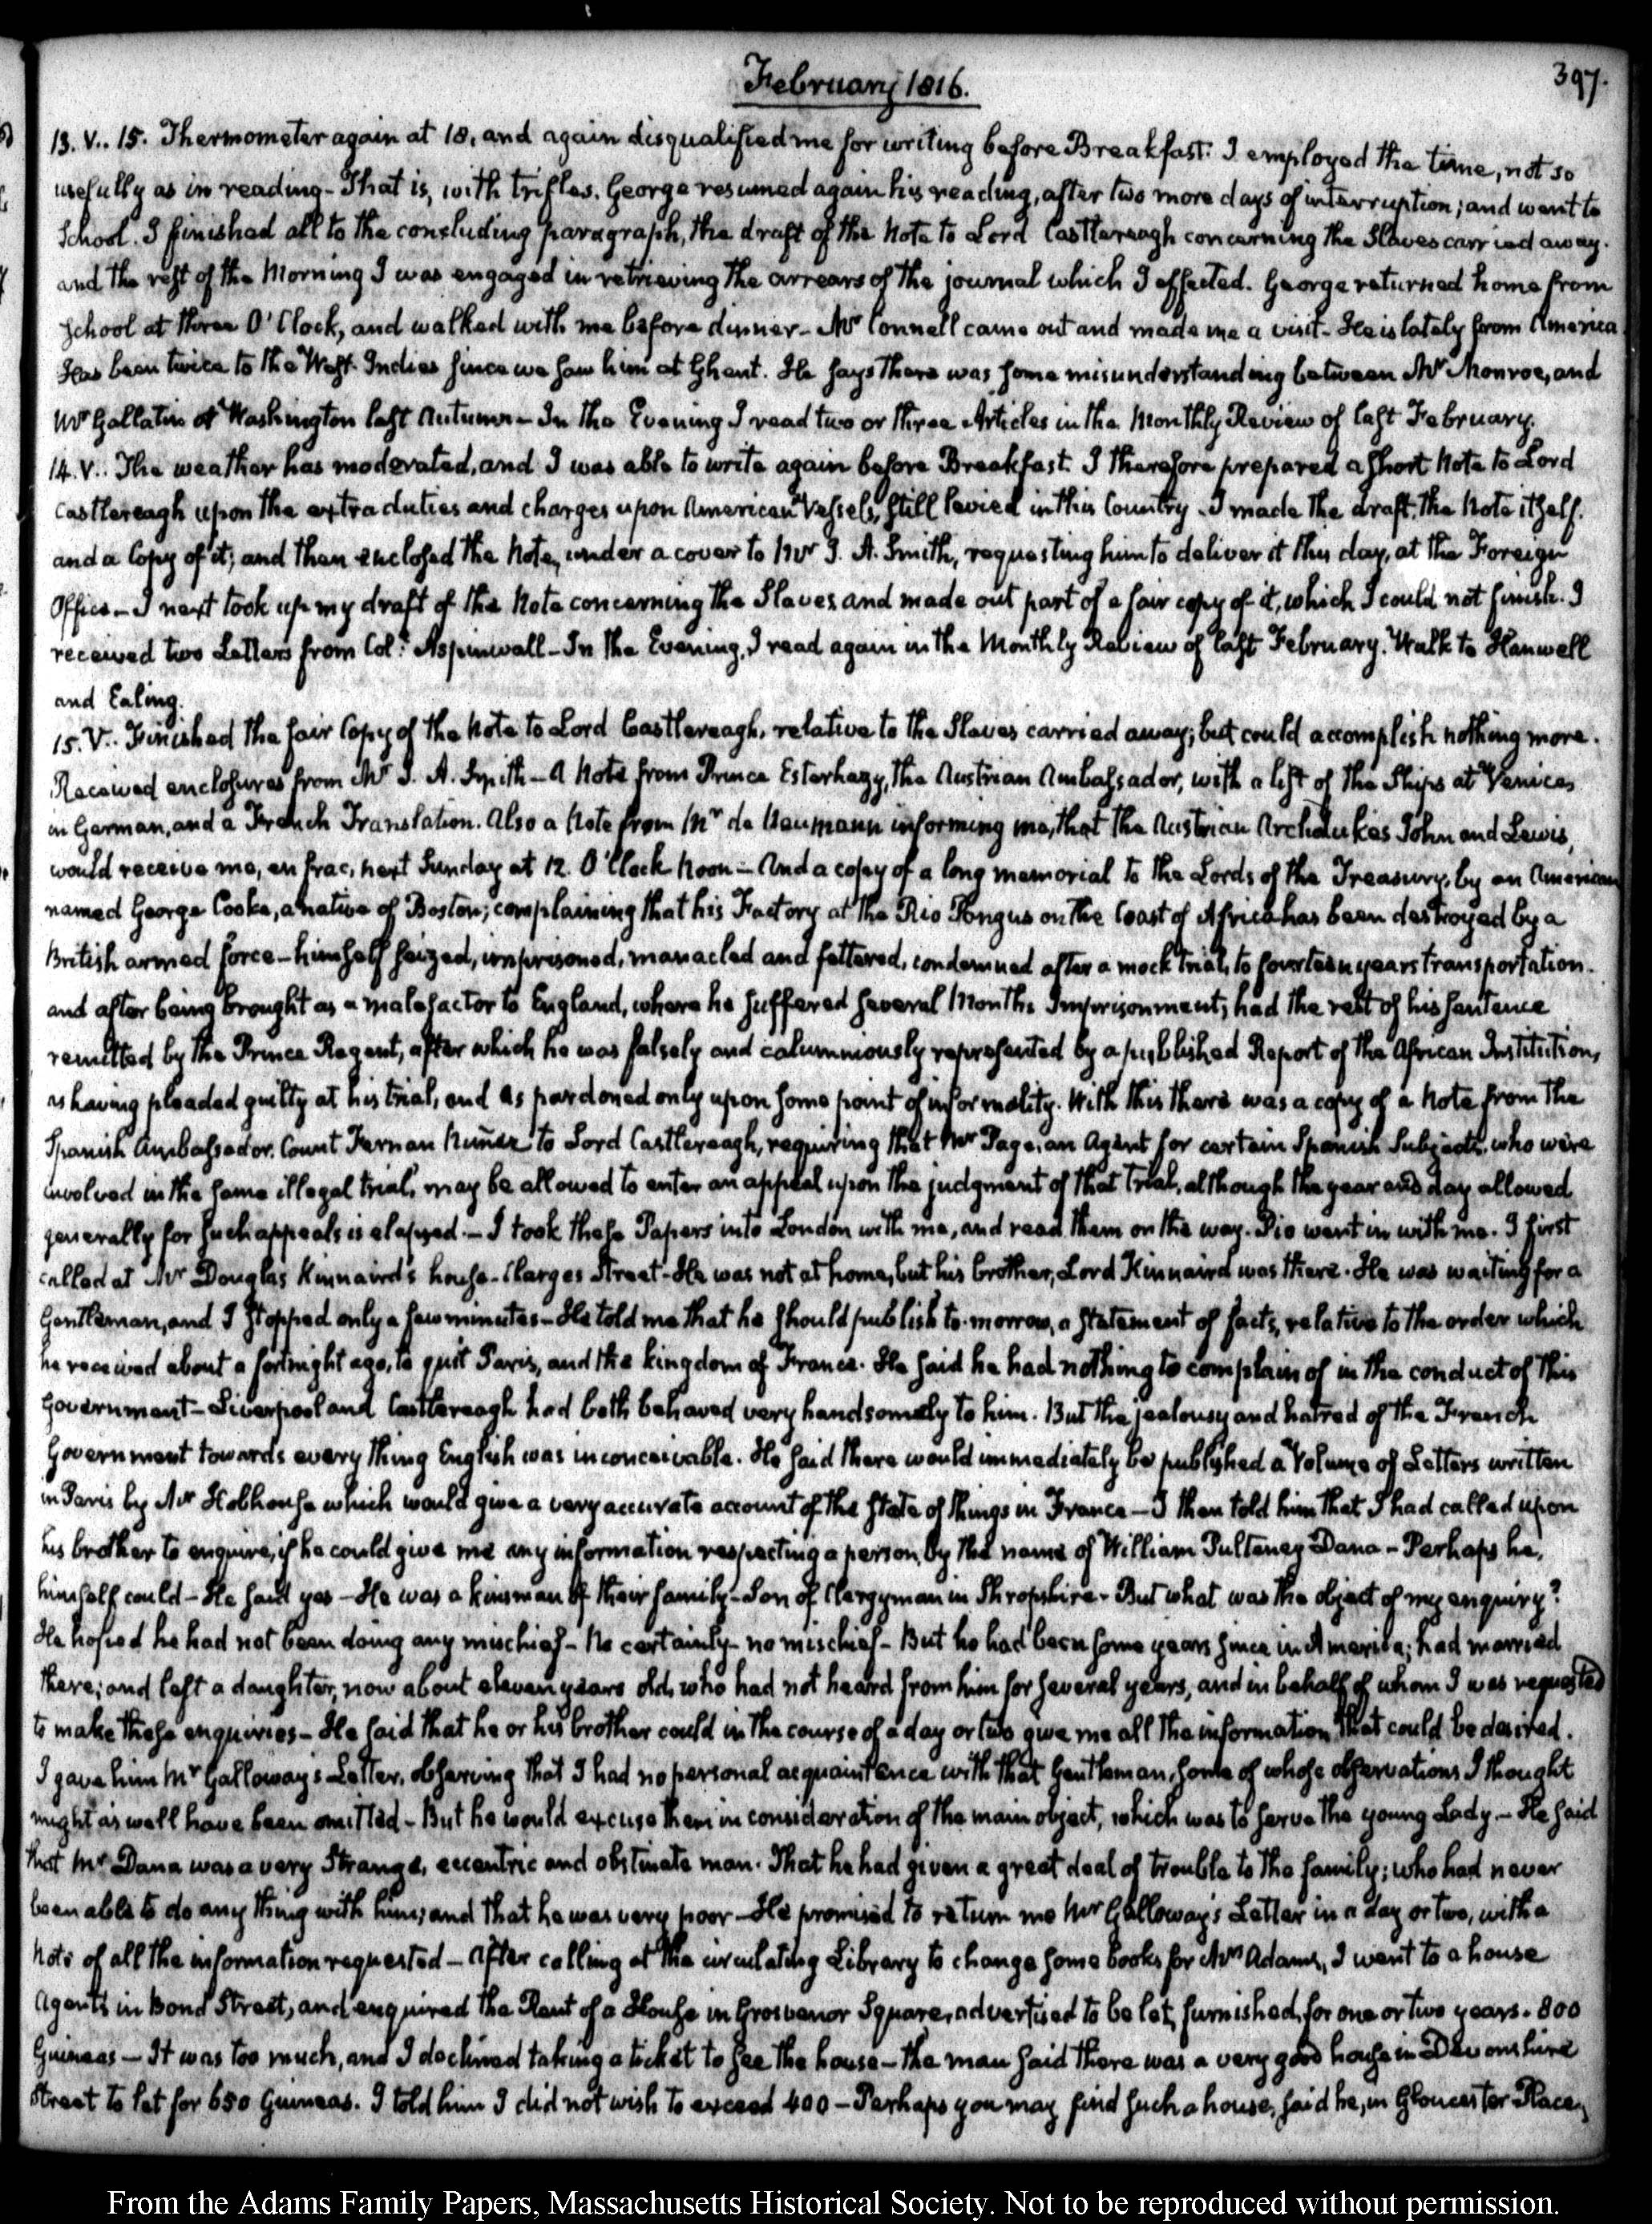 February 1816.
397.
13. V.. 15. Thermometer again at 18, and again disqualified me for writing before Breakfast. I employed the time, not so
usefully as in reading - That is, with trifles. George resumed again his reading, after two more days of interruption; and went to
School. I finished all to the concluding paragraph, the draft of the Note to Lord Castlereagh concerning the Slaves carried away.
and the rest of the Morning I was engaged in retrieving the arrears of the journal which I effected. George returned home from
School at three O'Clock, and walked with me before dinner - Mr Connell came out and made me a visit - He is lately from America
Has been twice to the West-Indies since we saw him at Ghent. He says there was some misunderstanding between Mr Monroe, and
Mr Gallatin at Washington last Autumn - In the Evening I read two or three Articles in the Monthly Review of last February.
14. V.. The weather has moderated, and I was able to write again before Breakfast. I therefore prepared a short Note to Lord
Castlereagh upon the extra duties and charges upon American Vessels, still levied in this Country. I made the draft, the Note itself.
and a Copy of it; and then enclosed the Note, under a cover to Mr J. A. Smith, requesting him to deliver it this day, at the Foreign
Office - I next took up my draft of the Note concerning the Slaves and made out part of a fair copy of it, which I could not finish. I
received two Letters from Col: Aspinwall - In the Evening, I read again in the Monthly Review of last February. Walk to Hanwell
and Ealing.
15. V.. Finished the fair Copy of the Note to Lord Castlereagh, relative to the Slaves carried away; but could accomplish nothing more.
Received enclosures from Mr J. A. Smith - A Note from Prince Esterhazy, the Austrian Ambassador, with a list of the Ships at Venice,
in German, and a French Translation. Also a Note from Mr de Neumann informing me, that the Austrian Archdukes John and Lewis,
would receive me, en frac, next Sunday at 12. O'Clock Noon - And a copy of a long memorial to the Lords of the Treasury, by an American
named George Cooke, a native of Boston; complaining that his Factory at the Rio Pongus on the Coast of Africa has been destroyed by a
British armed force - himself seized, imprisoned, manacled and fettered, condemned after a mock trial, to fourteen years transportation.
and after being brought as a malefactor to England, where he suffered several Months Imprisonment, had the rest of his sentence
remitted by the Prince Regent, after which he was falsely and calumniously represented by a published Report of the African Institution,
as having pleaded guilty at his trial, and as pardoned only upon some point of informality. With this there was a copy of a Note from the
Spanish Ambassador. Count Fernan Nuñez to Lord Castlereagh, requiring that Mr Page, an Agent for certain Spanish Subjects, who were
involved in the same illegal trial, may be allowed to enter an appeal upon the judgment of that Trial, although the year and day allowed
generally for such appeals is elapsed. - I took these Papers into London with me, and read them on the way. Pio went in with me. I first
called at Mr Douglas Kinnaird's house - Clarges Street - He was not at home, but his brother, Lord Kinnaird was there. He was waiting for a
Gentleman, and I stopped only a few minutes - He told me that he should publish to-morrow, a statement of facts, relative to the order which
he received about a fortnight ago, to quit Paris, and the kingdom of France. He said he had nothing to complain of in the conduct of this
Government - Liverpool and Castlereagh had both behaved very handsomely to him. But the jealousy and hatred of the French
Government towards every thing English was inconceivable. He said there would immediately be published a Volume of Letters written
in Paris by Mr Hobhouse which would give a very accurate account of the state of things in France - I then told him that I had called upon
his brother to enquire, if he could give me any information respecting a person, by the name of William Pulteney Dana - Perhaps he,
himself could - He said yes - He was a kinsman of their family - Son of Clergyman in Shropshire - But what was the object of my enquiry?
He hoped he had not been doing any mischief - No certainly - no mischief - But he had been some years since in America; had married
there; and left a daughter, now about eleven years old, who had not heard from him for several years, and in behalf of whom I was requested
to make these enquiries - He said that he or his brother could in the course of a day or two give me all the information that could be desired.
I gave him Mr Galloway's Letter, observing that I had no personal acquaintance with that Gentleman, some of whose observations I thought
might as well have been omitted - But he would excuse them in consideration of the main object, which was to serve the young Lady. - He said
that Mr Dana was a very strange, eccentric and obstinate man. That he had given a great deal of trouble to the family; who had never
been able to do any thing with him; and that he was very poor - He promised to return me Mr Galloway's Letter in a day or two, with a
Note of all the information requested - After calling at the circulating Library to change some books for Mrs Adams, I went to a house
Agents in Bond Street, and enquired the Rent of a House in Grosvenor Square, advertised to be let, furnished, for one or two years. 800
Guineas - It was too much, and I declined taking a ticket to see the house - the man said there was a very good house in Devonshire
Street to let for 650 Guineas. I told him I did not wish to exceed 400 - Perhaps you may find such a house, said he, in Gloucester Place,
From the Adams Family Papers, Massachusetts Historical Society. Not to be reproduced without permission.